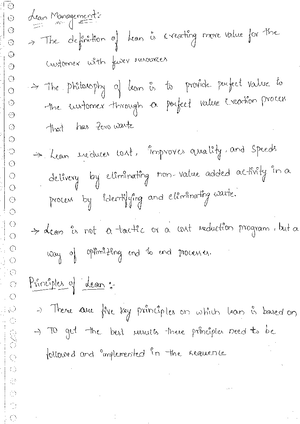 Lean Management:-
→ The definition of Lean is creating more value for the
customer with fewer resources
→ The philosophy of lean is to provide perfect value to
the customer through a perfect value creation process
that has zero waste
→ Lean reduces cost, improves quality, and speeds
delivery by eliminating non-value added activity in a
process by Identifying and eliminating waste.
→ Lean is not a tactic or a cost reduction program, but a
way of optimizing end to end processes.
Principles of Lean :-
→ There are five key principles on which lean is based on
→ To get the best results these principles need to be
followed and implemented in the sequence